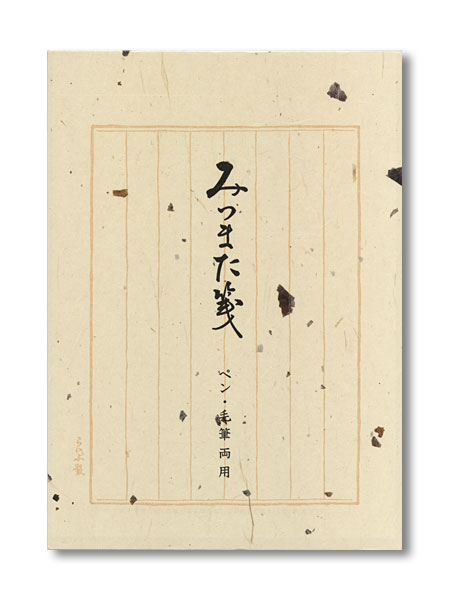 みつまた箋
ペン・毛筆両用